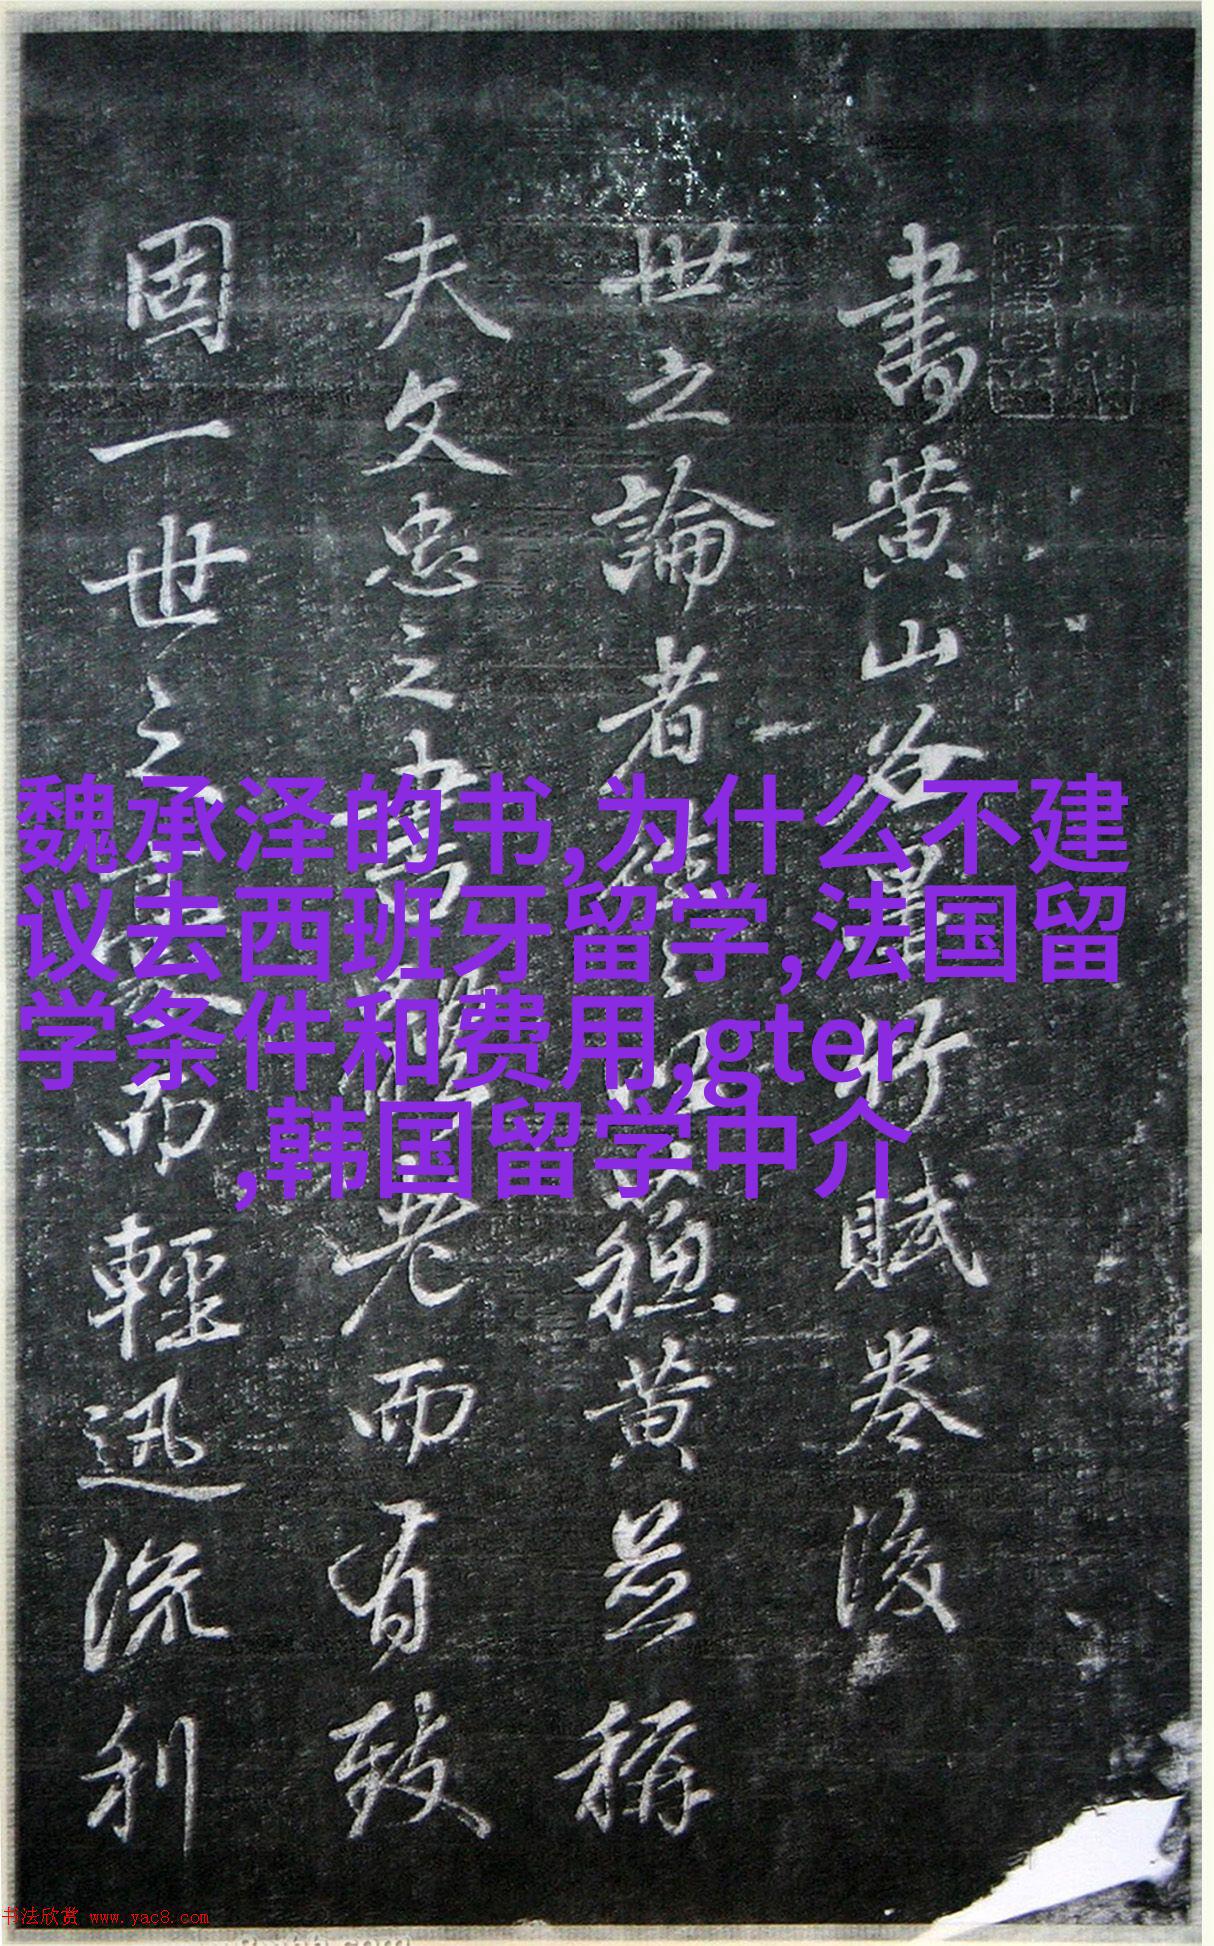 書黄山谷墨竹賦卷後
世之論者蘓黄並稱
夫文忠之書體老而有致
固一世之而輕迅流利
魏承泽的书,为什么不建
议去西班牙留学,法国留
学条件和费用,gter
,韩国留学中介
书法欣赏 www.yac8.com